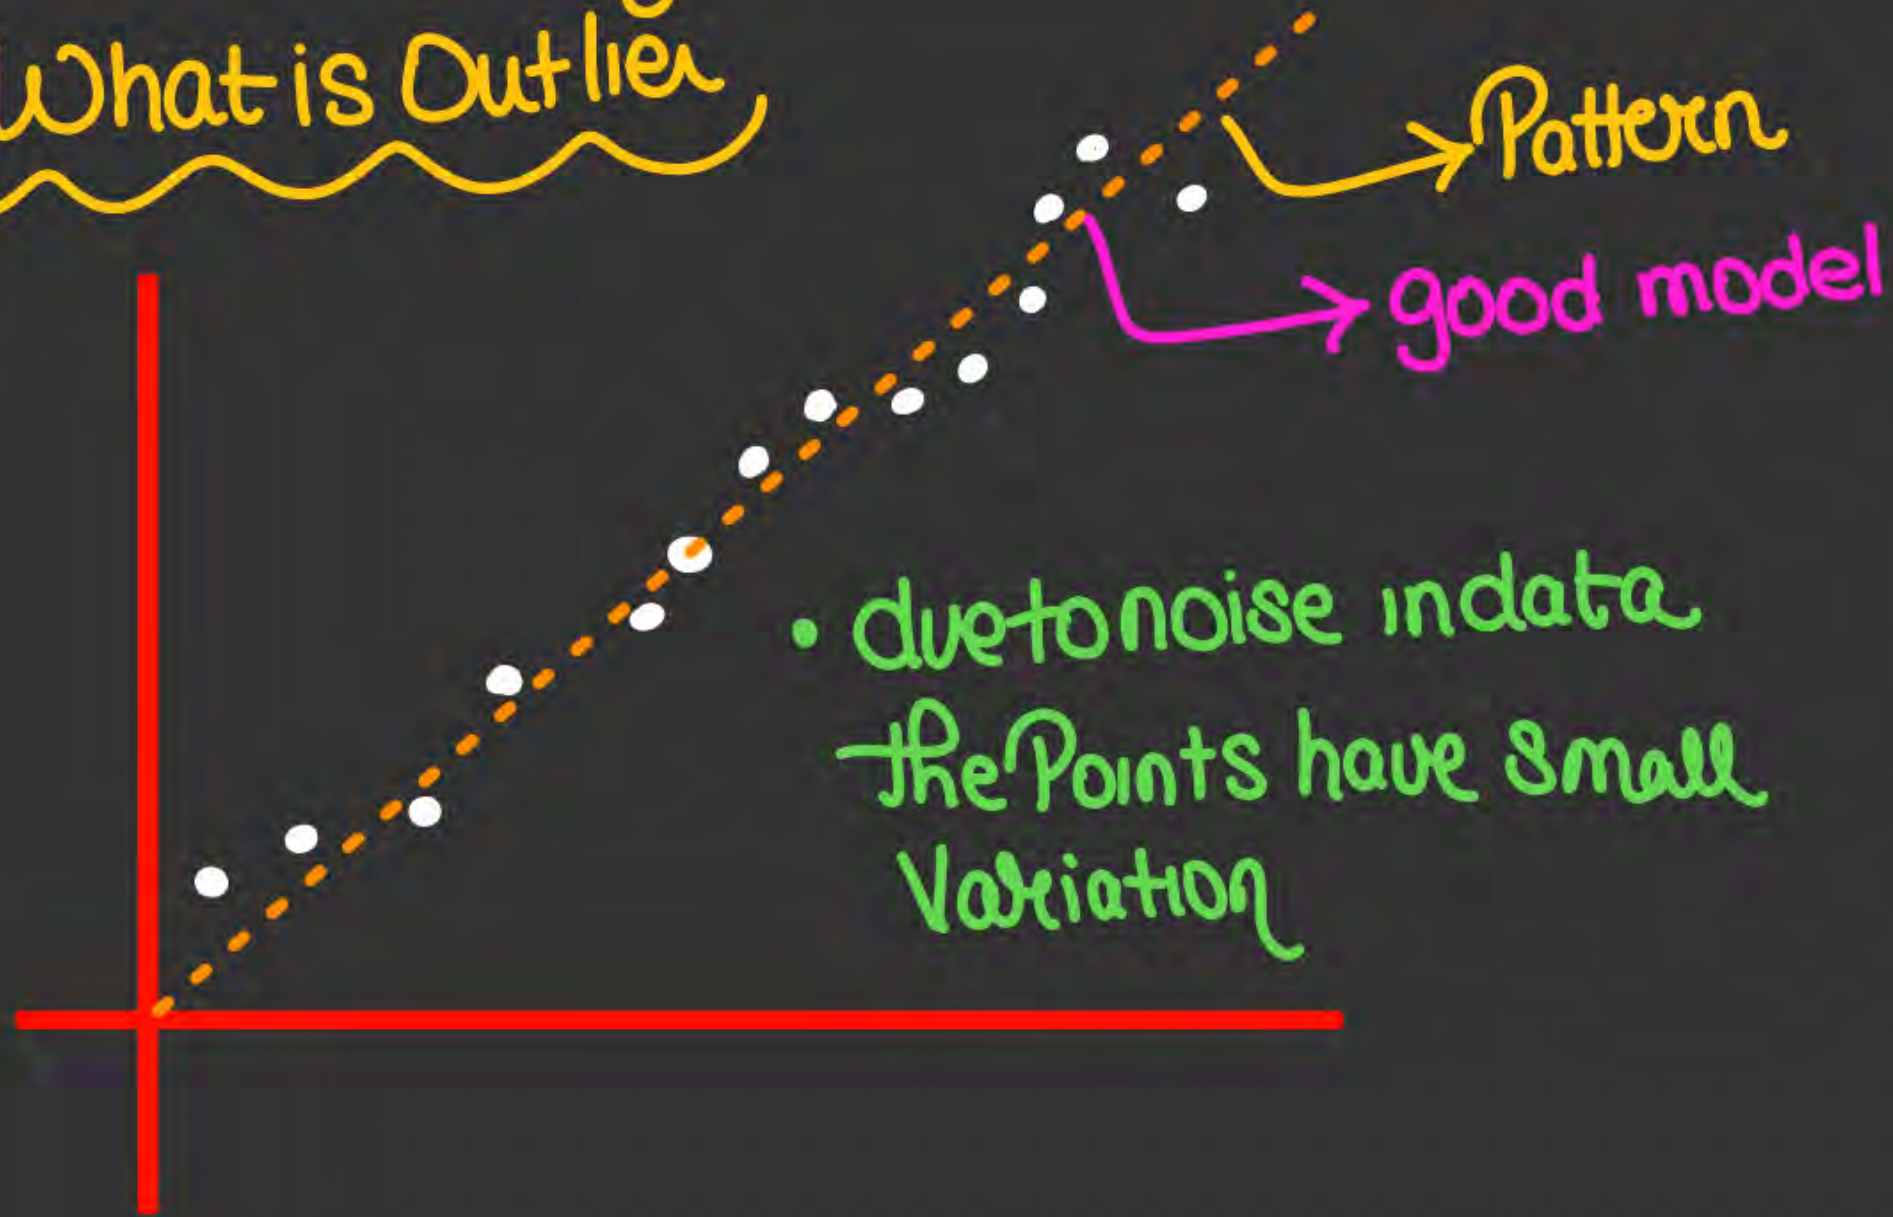 What is Outlier
Pattern
good model
• due to noise in data
the Points have small
Variation